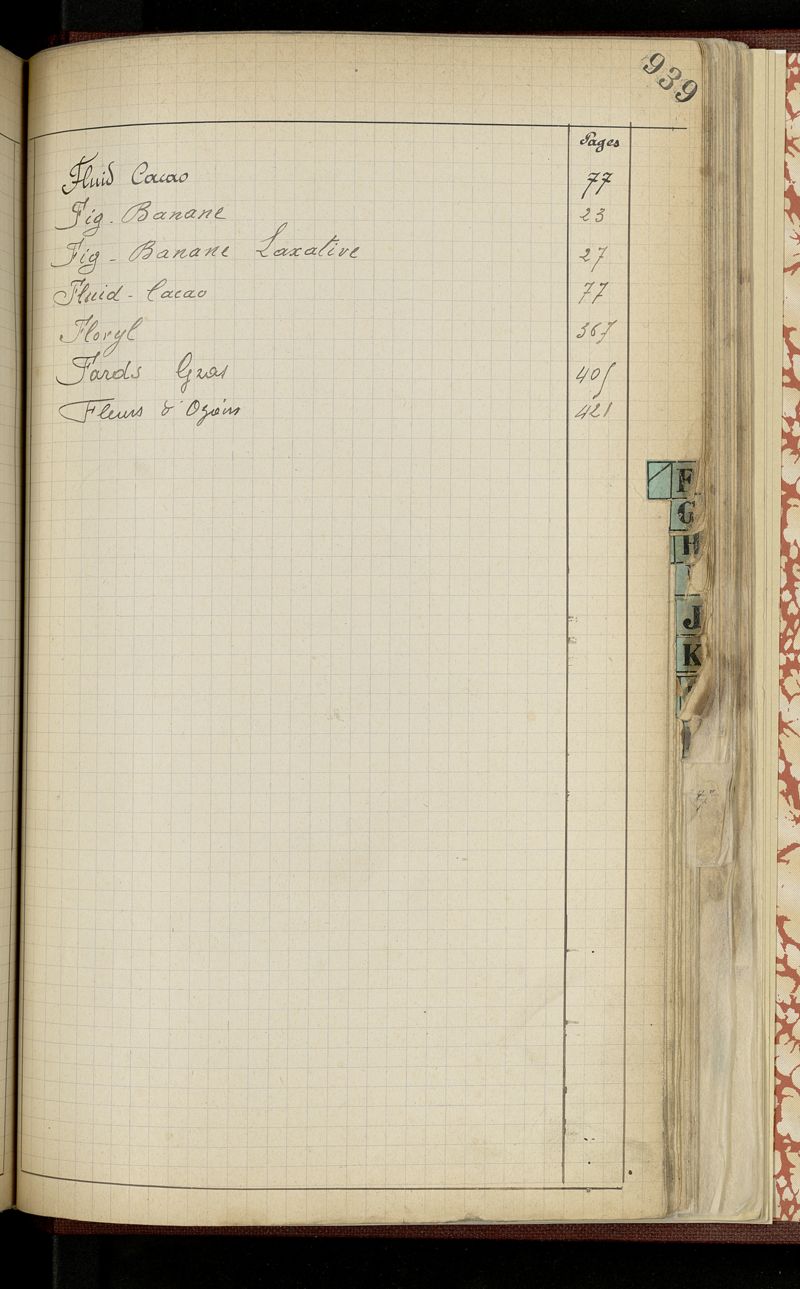 939
Pages
Fluid Cacao 77
Fig. Banane 23
Fig - Banane Laxative 27
Fluid - Cacao 77
Floryl 367
Fards Gras 405
Fleurs d' 421
F
G
H
J
K